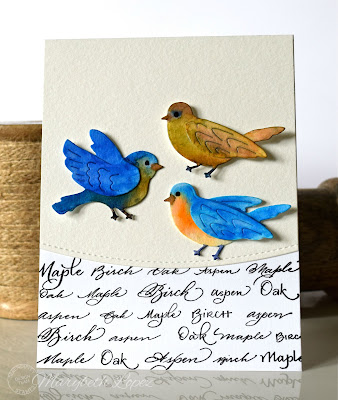 Maple Birch Oak Aspen Maple
Oak Maple Birch aspen Oak
aspen Oak Maple Birch aspen
Birch aspen Oak maple Birch
Maple Oak Aspen Birch Maple
Marybeth Lopez